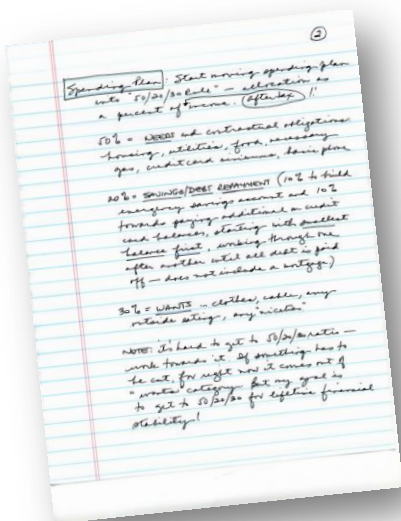 2
Spending Plan: Start moving spending plan
into "50/20/30 Rule" — allocation as
a percent of income. (after tax)!!
50% = NEEDS and contractual obligations
housing, utilities, food, necessary
gas, credit card minimums, basic phone
20% = SAVINGS/DEBT REPAYMENT (10% to build
emergency savings account and 10%
towards paying additional on credit
card balances, starting with smallest
balance first, working through one
after another until all debt is paid
off — does not include a mortgage)
30% = WANTS ... clothes, cable, any
outside eating, any "niceties"
NOTE: it's hard to get to 50/20/30 ratio —
work towards it. If something has to
be cut, for right now it comes out of
"wants" category. But my goal is
to get to 50/20/30 for lifetime financial
stability!